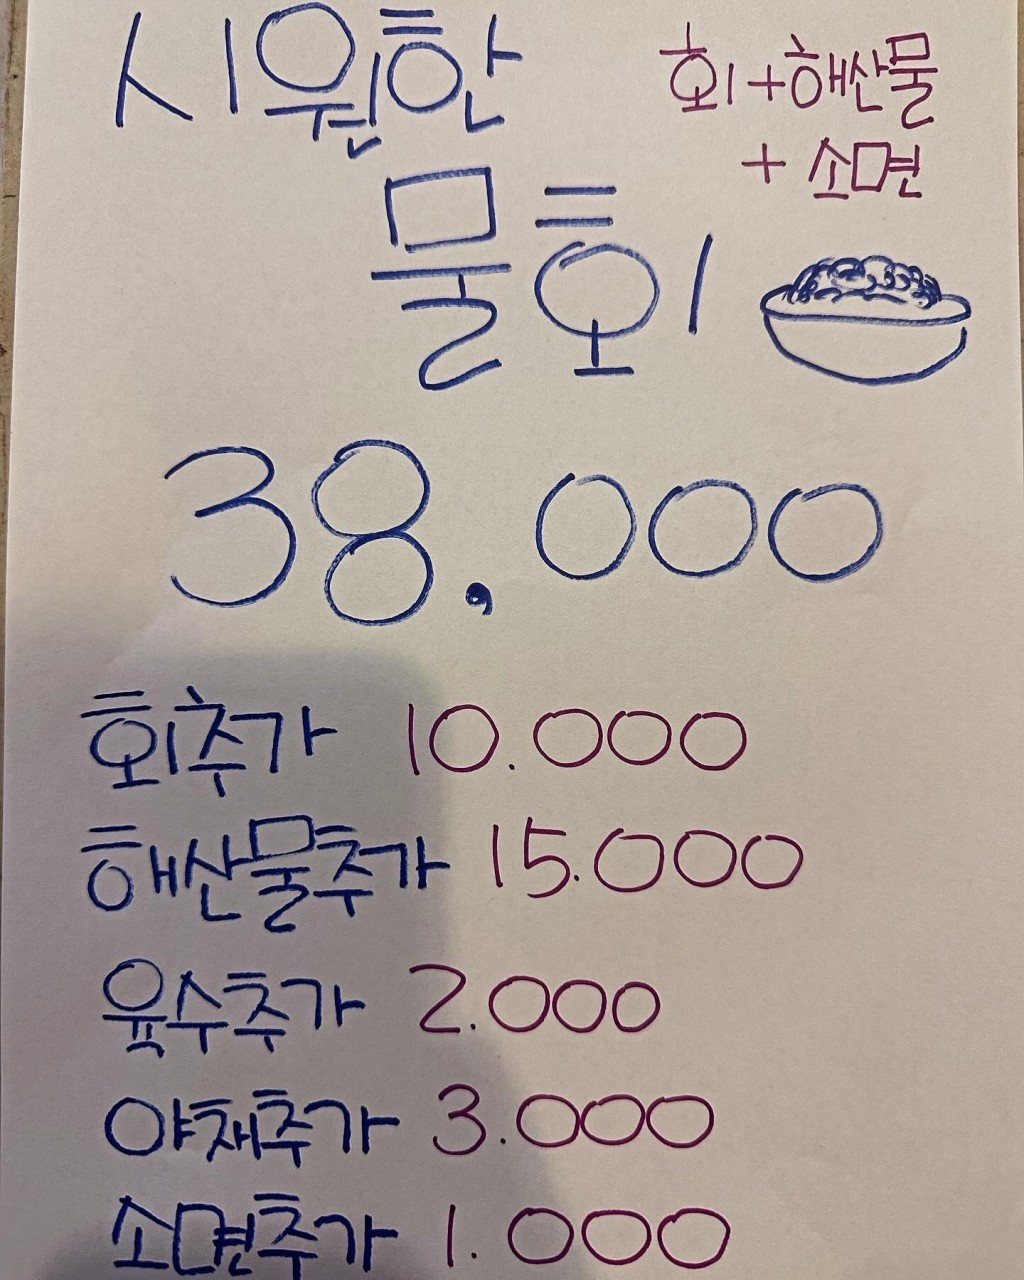 시원한
회+해산물
+ 소면
물회
38,000
회추가 10.000
해산물추가 15.000
육수추가 2.000
야채추가 3.000
소면추가 1.000